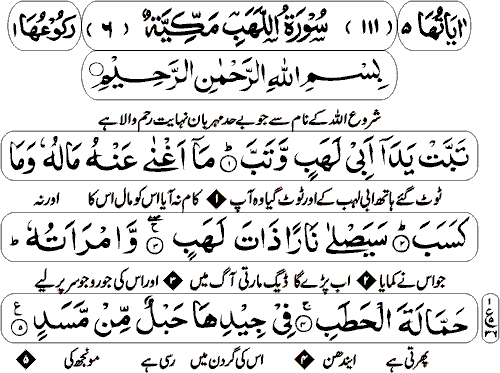 اٰيَاتُهَا ٥ (١١١) سُوْرَةُ اللَّهَبِ مَكِّيَّةٌ (٦) رُكُوْعُهَا ١
بِسْمِ اللهِ الرَّحْمٰنِ الرَّحِيْمِ
شروع اللہ کے نام سے جو بے حد مہربان نہایت رحم والا ہے
تَبَّتْ يَدَاۤ اَبِيْ لَهَبٍ وَّتَبَّ ؕ﴿١﴾ مَاۤ اَغْنٰى عَنْهُ مَالُهٗ وَمَا
ٹوٹ گئے ہاتھ ابی لہب کے اور ٹوٹ گیا وہ آپ ۱ کام نہ آیا اس کو مال اس کا اور نہ
كَسَبَ ؕ﴿٢﴾ سَيَصْلٰى نَارًا ذَاتَ لَهَبٍ ۖ﴿٣﴾ وَّامْرَاَتُهٗ ؕ
جو اس نے کمایا ۲ اب پڑے گا ڈیگ مارتی آگ میں ۳ اور اس کی جورو جو سر پر لیے
حَمَّالَةَ الْحَطَبِ ۚ﴿٤﴾ فِيْ جِيْدِهَا حَبْلٌ مِّنْ مَّسَدٍ ﴿٥﴾
پھرتی ہے ایندھن ۴ اس کی گردن میں رسی ہے مونجھ کی ۵